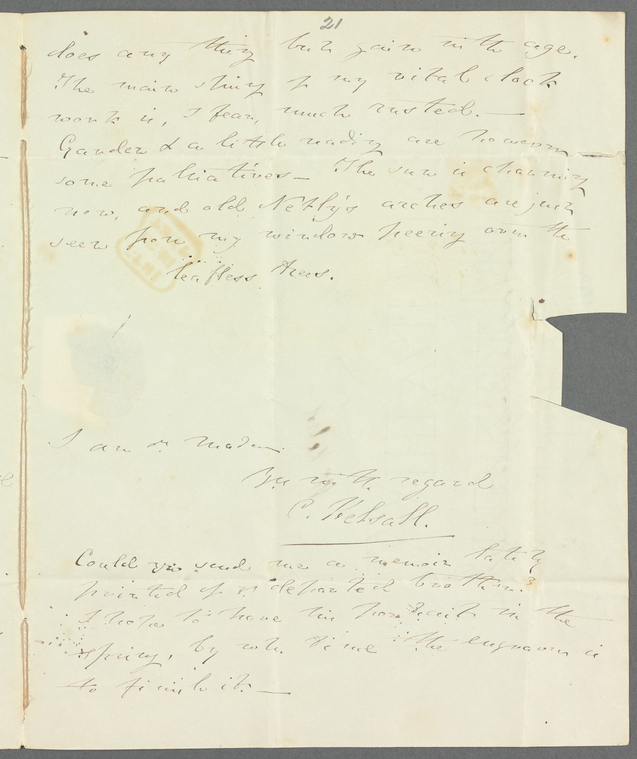 21
does any thing but gain in the age.
The main string of my vital clock
work is, I fear, much rusted. —
Garden & a little reading are however
some paliatives — The sun is charming
now, and old Netly's arches are just
seen from my window peering over the
leafless trees.
I am dr. Madam
C. Kelsall.
Could you send me a memoir lately
printed of yr departed brother?
I hope to have his portrait in the
spring, by wh. time the engraver is
to finish it. —